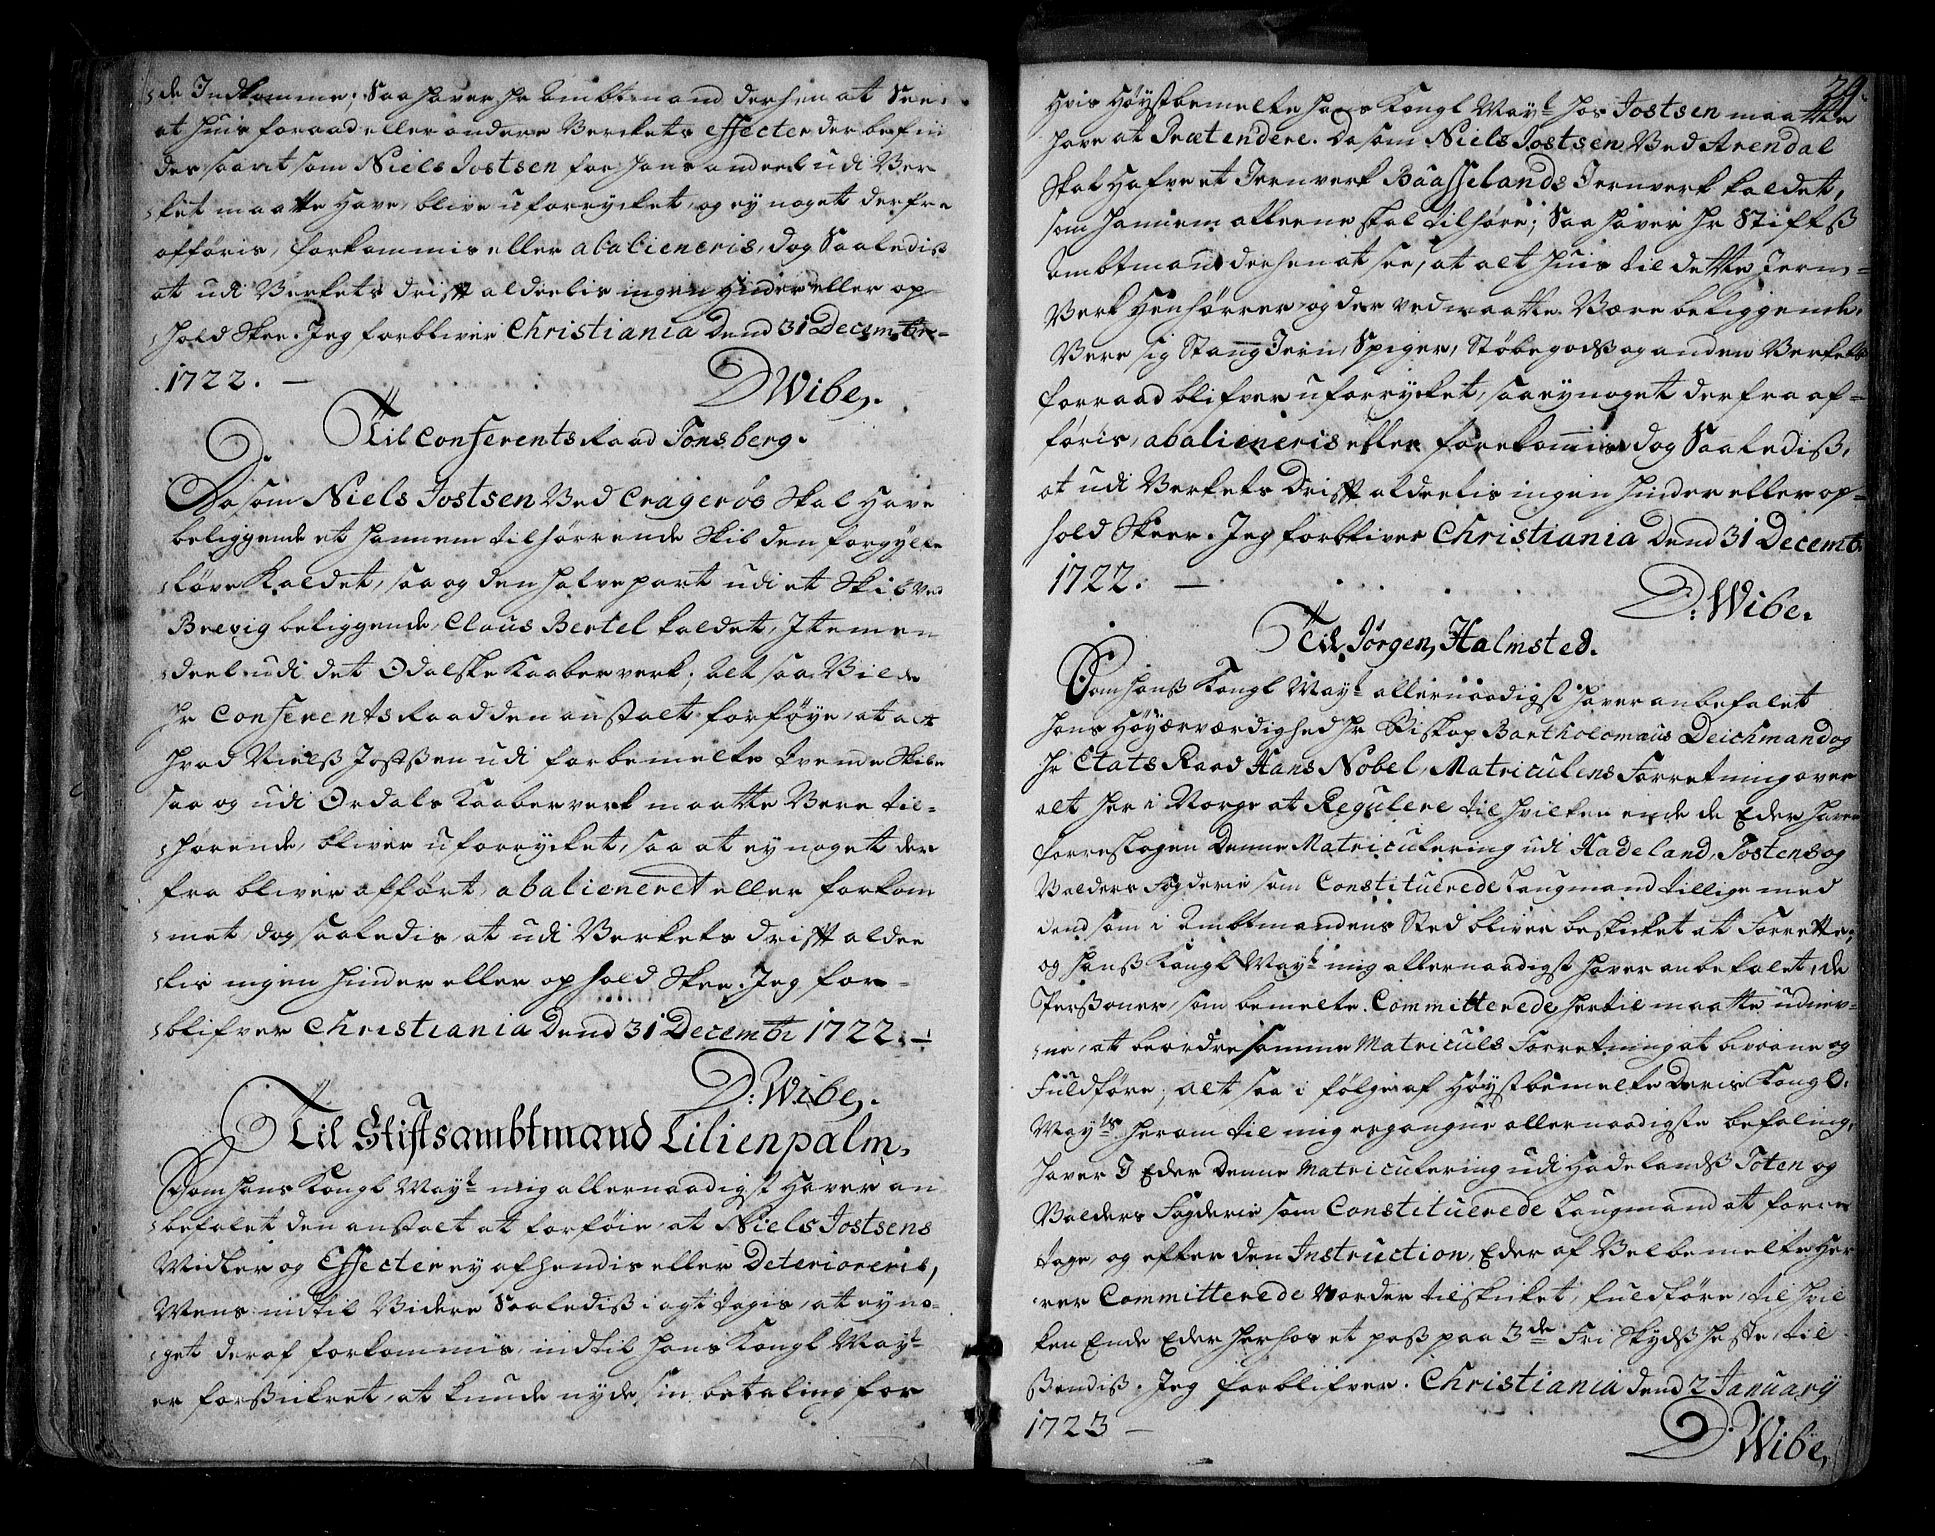 de Indkomme; Saa haver hr Ambtmand derhen at See,
at huis foraad eller andere Verckets effecter der befin
des, samt som Niels Jostsen for hans andeel udi Ver
ket maatte have, blive uforrycket, og ey noget derfra
afføris, forkommis eller abalieneris, dog Saalediß
at udi Verkets drifft aldeelis ingen hinder eller op-
hold Skee. Jeg forbliver Christiania dend 31 Decembr-
1722. —
DWibe,.
Til Conferents Raad Tonsberg.
Da som Niels Jostsen Ved Cragerøe Skal have
beliggende et hannem tilhørrende Skib den forgylte
Løve Kaldet, saa og den halve part udi et Skib Ved
Brevig beliggende, Claus Bertel kaldet, Item en
deel udi det Odalske Kaaberverk; Alt saa Vilde
Hr Conferents Raad den anstalt forføye, at alt
hvad Nielß Jostßen udi forbemelte tvende Skibe
saa og udi Ordals Kaaberverk maatte Vere til-
hørende, bliver uforrycket, saa at ey noget der
fra bliver affört, abalieneret eller forkom
met, dog saaledis, at udi Verkets drifft aldee
lis ingen hinder eller ophold Skee. Jeg for-
blifver Christiania Dend 31 Decembr 1722. —
D: Wibe,.
Til Stiftsambtmand Lilienpalm,
Som hans Kongl May:t mig allernaadigst haver an
befalet den anstalt at forföie, at Niels Jostsens
Midler og Effecter ey afhendis eller Deterioreris,
Mens indtil Videre Saalediß i agt tagis, at ey no-
get deraf forkommis, indtil hans Kongl May:t
er forßikret, at kunde nyde sin betaling for
29.
hvis Høystbemelte hans Kongl May:t hos Jostsen maatte
have at Prætendere. Da som Niels Jostsen Ved Arendal
Skal hafve et Jernverk Baasselands Jernverk kaldet,
som hannem alleene skal tilhøre; Saa haver Hr Stifts
Ambtmand derhen at see, at alt huis til dette Jern-
Verk henhørrer og der ved maatte Være beliggende,
Vere sig Stang Jern, Spiger, Støbegodß og anden Verkets
forraad blifver uforrycket, saa ey noget derfra af-
føris, abalieneris eller forekommis dog Saalediß,
at udi Verkets Drifft aldeelis ingen hinder eller op-
hold Skeer. Jeg forbliver Christiania Dend 31 Decembr
1722. —
D: Wibe.
Til Jørgen, Halmsted.
Som hanß Kongl May:t allernaadigst haver anbefalet
hans Høyærværdighed Hr Biskop Bartholomæus Deichmand og
Hr Etats Raad Hans Nobel, Matriculens Forretning over
alt her i Norge at Regulere til hvilken ende de Eder haver
forreslagen Denne Matriculering udi Hadeland, Tostens og
Valders Fogderie som Constituerede Laugmand tillige med
dend som i Ambtmandens Sted bliver beskicket at Forrette;
og hanß Kongl May:t mig allernaadigst haver anbefalet, de
Perßoner, som bemelte Committerede, hertil maatte udnev-
ne, at beordre samme Matriculs Forretning at bivaane og
Fuldføre; alt saa i følge af Høystbemelte Deris Kongl:
May:ts herom til mig ergangne allernaadigste befaling,
haver I Eder Denne Matriculering udi Hadelandß Toten og
Valders Fogderie som Constituerede Laugmand at fore
tage, og efter den Instruction, Eder af Velbemelte Her
rer Committerede vorder tilskicket, fuldføre, til hvil
ken Ende Eder herhos et paß paa 3de Fri Skydß heste, til
ßendiß. Jeg forblifver. Christiania dend 2 January
1723 —
D Wibe,